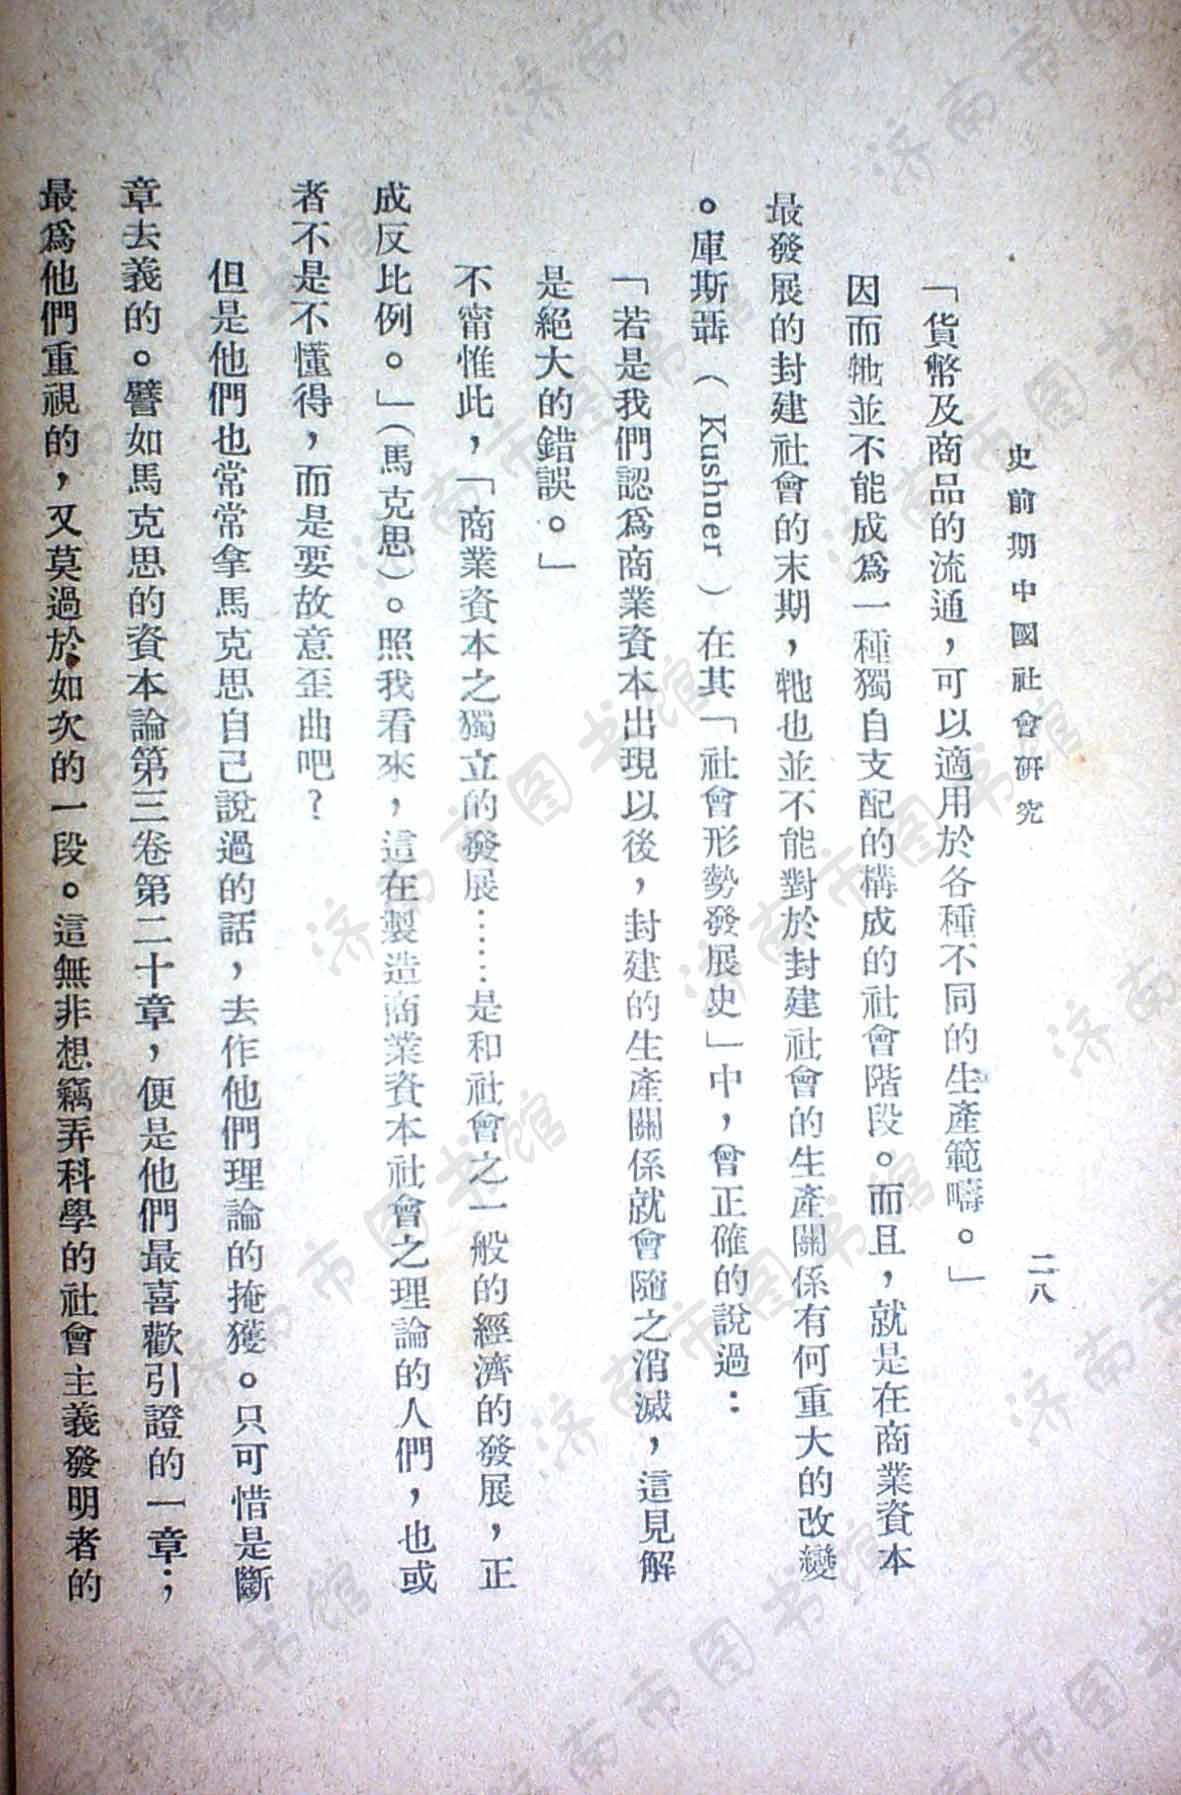 史前期中國社會研究
二八
「貨幣及商品的流通，可以適用於各種不同的生產範疇。」
因而牠並不能成爲一種獨自支配的構成的社會階段。而且，就是在商業資本
最發展的封建社會的末期，牠也並不能對於封建社會的生產關係有何重大的改變
。庫斯聶（Kushner）在其「社會形勢發展史」中，曾正確的說過：
「若是我們認爲商業資本出現以後，封建的生產關係就會隨之消滅，這見解
是絕大的錯誤。」
不甯惟此，「商業資本之獨立的發展……是和社會之一般的經濟的發展，正
成反比例。」（馬克思）。照我看來，這在製造商業資本社會之理論的人們，也或
者不是不懂得，而是要故意歪曲吧？
但是他們也常常拿馬克思自己說過的話，去作他們理論的掩獲。只可惜是斷
章去義的。譬如馬克思的資本論第三卷第二十章，便是他們最喜歡引證的一章；
最爲他們重視的，又莫過於如次的一段。這無非想竊弄科學的社會主義發明者的
济南市图书馆